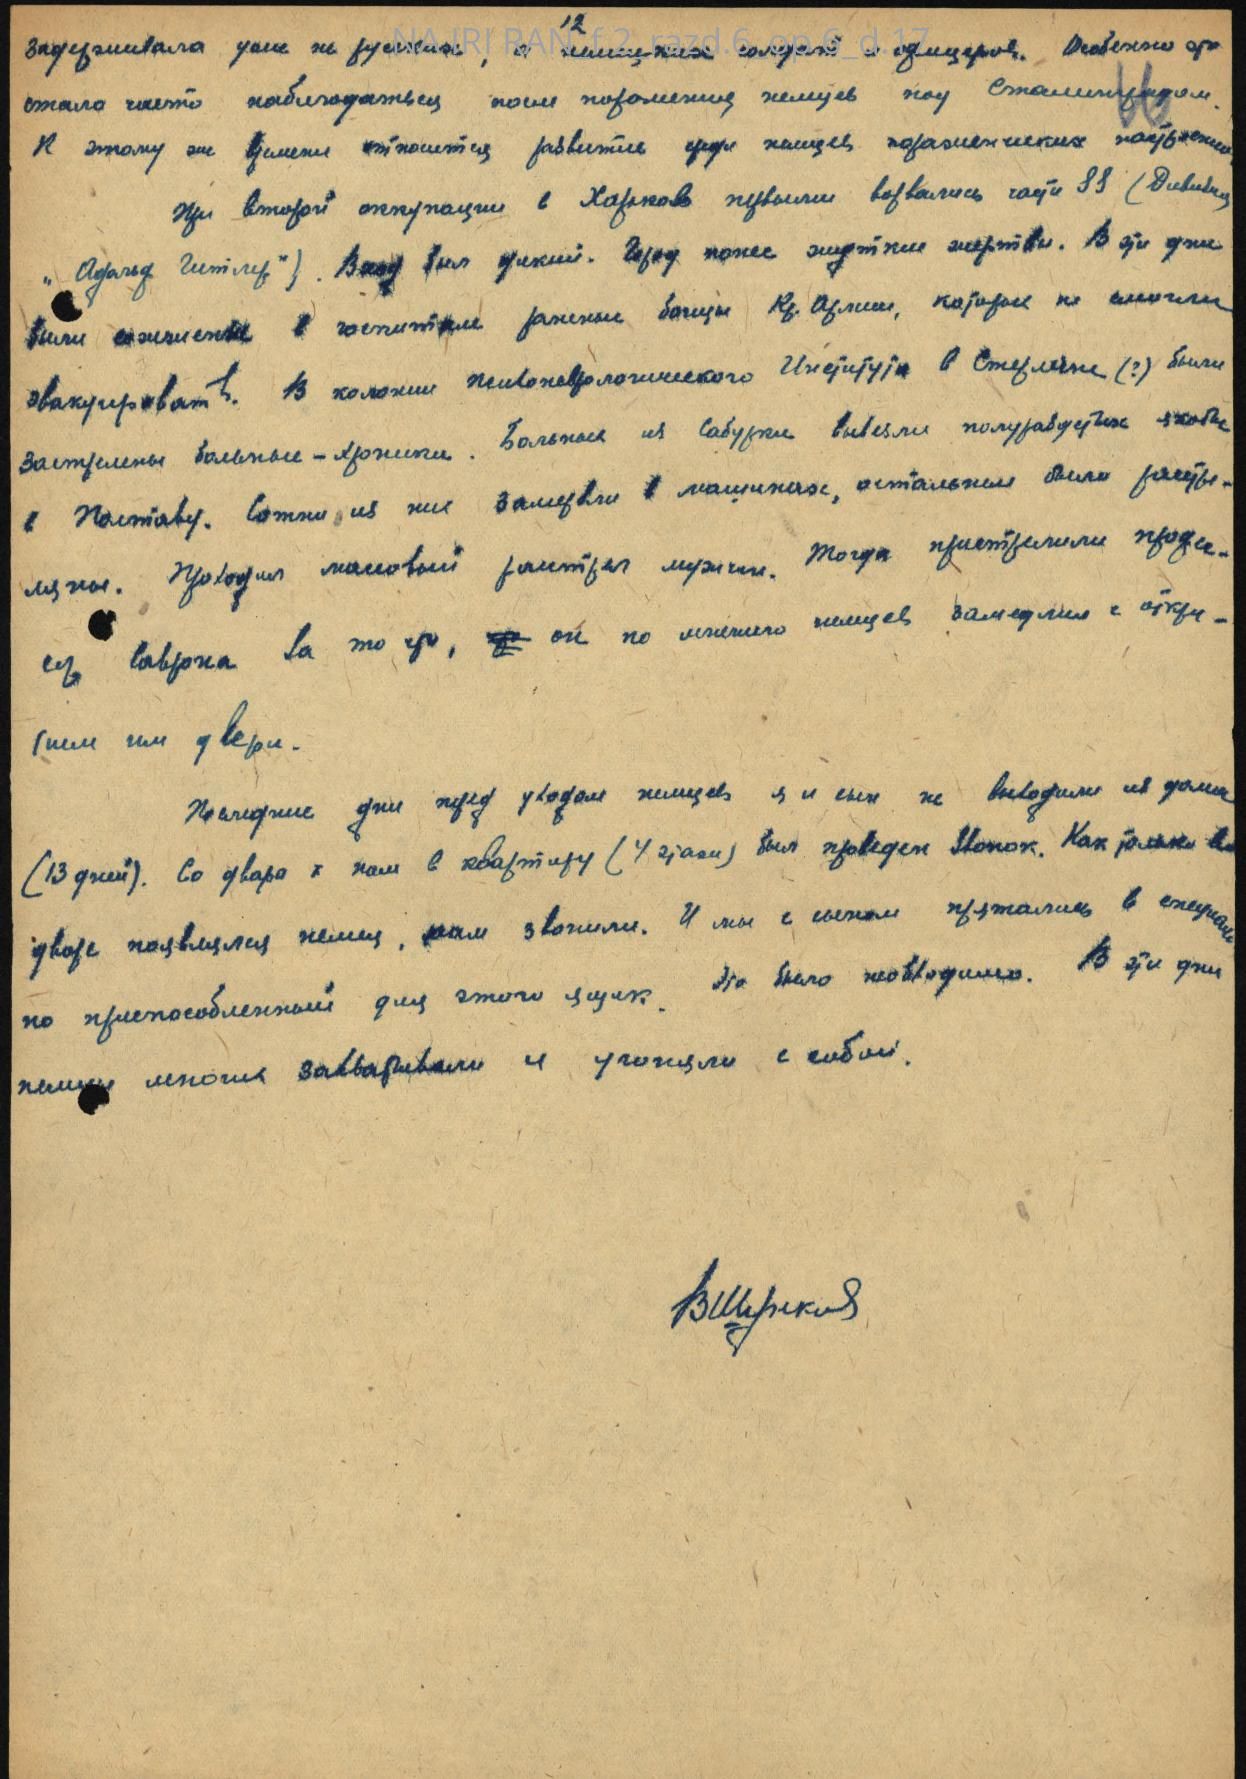 12
NA IRI RAN_f.2_razd.6_op.6_d.17
задерживала уже не русских, а немецких солдат и офицеров. Особенно это
стало часто наблюдаться после поражения немцев под Сталинградом.
К этому же времени относится развитие среди немцев пораженческих
При второй оккупации в Харьков первыми ворвались части SS (Дивизия
„Адольф Гитлер"). Вход был дикий. Город понес жуткие жертвы. В эти дни
были сожжены в госпитале раненые бойцы Кр. Армии, которых не смогли
эвакуировать. В колонии Психоневрологического Института в (?) были
застрелены больные-хроники. Больных из Сабурки вывезли полураздетых якобы
в Полтаву. Сотни из них замерзли в машинах, остальные были расстре-
ляны. Проходил массовый расстрел мужчин. Тогда пристрелили профес-
сор за то что, он по мнению немцев замедлил с откры-
тием им двери.
Последние дни перед уходом немцев я и сын не выходили из дома
(13 дней). Со двора к нам в квартиру (4 этаж) был проведен звонок. Как только во
дворе появлялся немец, нам звонили. И мы с сыном прятались в специаль
но приспособленный для этого ящик. Это было необходимо. В эти дни
немцы многих захватывали и угоняли с собой.